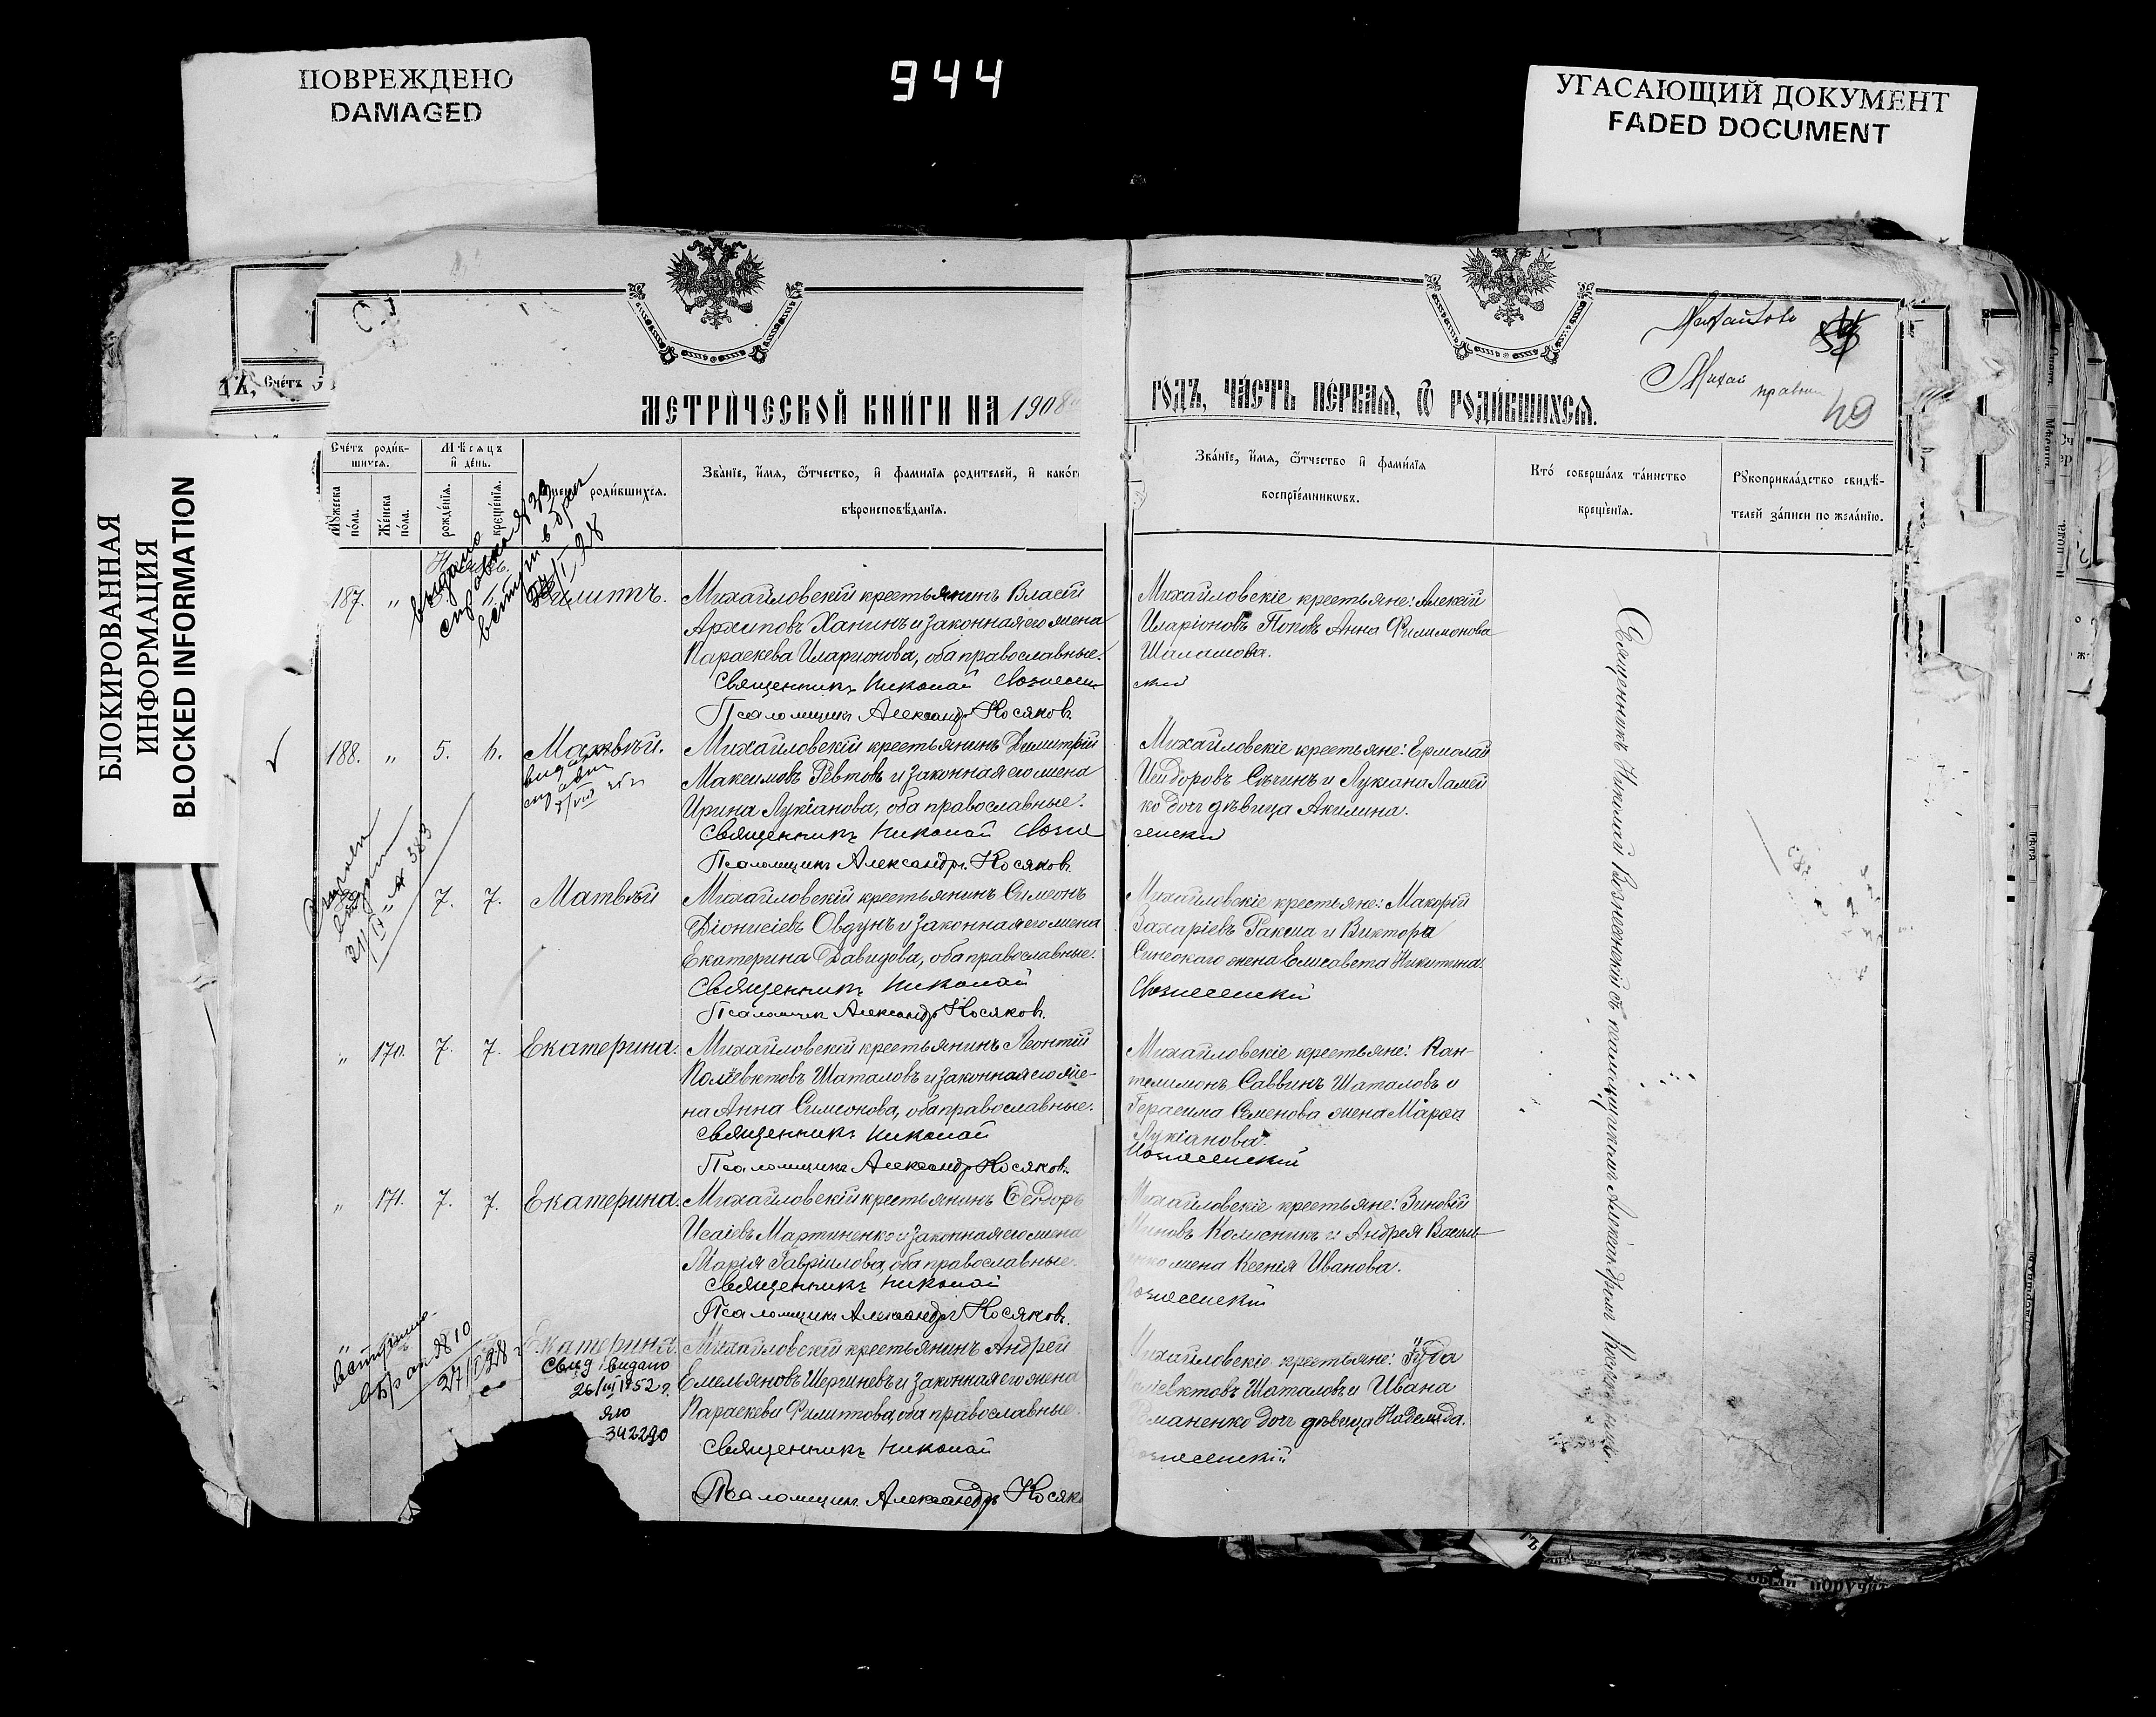 ПОВРЕЖДЕНО
DAMAGED
944
УГАСАЮЩИЙ ДОКУМЕНТ
FADED DOCUMENT
БЛОКИРОВАННАЯ
ИНФОРМАЦИЯ
BLOCKED INFORMATION
Счётъ
49
МЕТРИ́ЧЕСКОЙ КНИ́ГИ НА 1908
ГОДЪ, ЧА́СТЬ ПЕ́РВАЯ, Ѡ РОДИ́ВШИХСЯ.
Счётъ роди́в-
шихся.
Му́жеска по́ла.
Же́нска по́ла.
Мѣсяцъ и де́нь.
рожде́нія.
креще́нія.
роди́вшихся.
Зва́ніе, и́мя, ѻ́тчество, и фами́лія роди́телей, и како́г
вѣроисповѣ́данія.
Зва́ніе, и́мя, ѻ́тчество и фами́лія
воспріе́мниковъ.
Кто́ соверша́лъ та́инство
креще́нія.
Рукоприкла́дство свидѣ́-
телей за́писи по жела́нію.
выдано
справка
187. "
Михайловскій крестьянинъ Власій
Архиповъ Ханинъ и законная его жена
Параскева Иларионова, оба православные.
Священникъ Николай Вознесен
Псаломщикъ Александръ Косяковъ.
Михайловскіе крестьяне: Алексій
Иларіоновъ Поповъ Анна Филимонова
Шаламова.
скій
188. " 5. 6. Матвѣй.
Михайловскій крестьянинъ Димитрій
Максимовъ Ревтовъ и законная его жена
Ирина Лукіанова, оба православные.
Священникъ Николай Возне
Псаломщикъ Александръ Косяковъ.
Михайловскіе крестьяне: Ермолай
Исидоровъ Сычинъ и Лукіана Ламей
ко дочь дѣвица Акилина.
сенскій
7. 7. Матвѣй
Михайловскій крестьянинъ Симеонъ
Діонисіевъ Овдунъ и законная его жена
Екатерина Давидова, оба православные.
Священникъ Николай
Псаломщикъ Александръ Косяковъ.
Михайловскіе крестьяне: Макорій
Захаріевъ Ракша и Виктора
Синеокаго жена Елисавета Никитина.
Вознесенскій
" 170. 7. 7. Екатерина.
Михайловскій крестьянинъ Леонтій
Поліевктовъ Шаталовъ и законная его же-
на Анна Симеонова, оба православные.
Священникъ Николай
Псаломщикъ Александръ Косяковъ.
Михайловскіе крестьяне: Пан-
телимонъ Саввинъ Шаталовъ и
Герасима Семенова жена Марѳа
Лукіанова.
Вознесенскій
" 171. 7. 7. Екатерина.
Михайловскій крестьянинъ Ѳеодоръ
Исаіевъ Мартиненко и законная его жена
Марія Гавріилова, оба православные.
Священникъ Николай
Псаломщикъ Александръ Косяковъ.
Михайловскіе крестьяне: Зиновій
Колисникъ и Андрея Васили-
жена Ксенія Иванова.
ознесенскій
Екатерина.
Свид выдано
26/III 1952 г.
342290
Михайловскій крестьянинъ Андрей
Емельяновъ Шергиневъ и законная его жена
Параскева Филиппова, оба православные.
Священникъ Николай
Псаломщикъ Александръ Косяко
Михайловскіе крестьяне: Іуда
ліевктовъ Шаталовъ и Ивана
маненко дочь дѣвица Надежда.
ознесенскій
Священникъ Николай Вознесенскій съ псаломщикомъ Александромъ Косяковымъ.